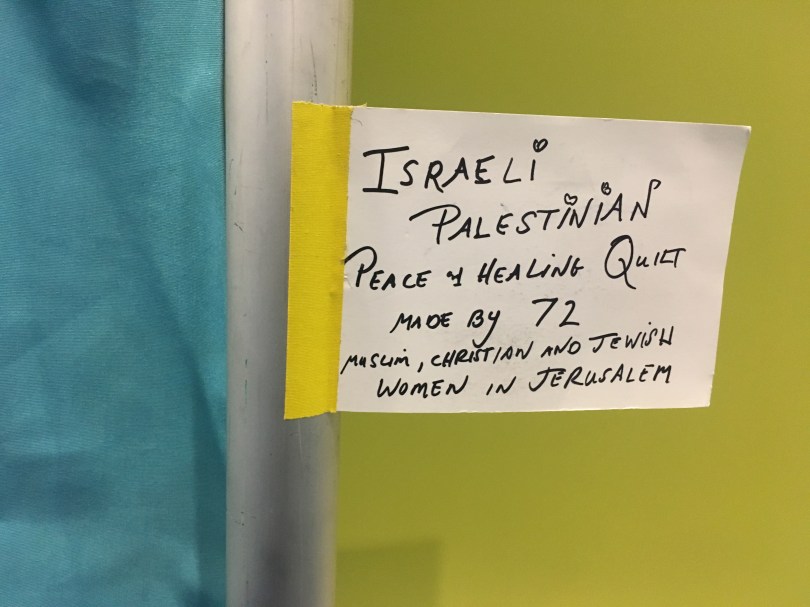 ISRAELi
PALESTiNiAN
PEACE & HEALiNG QUiLT
MADE By 72
MUSLiM, CHRiSTIAN AND JEWiSH
WOMEN iN JERUSALEM